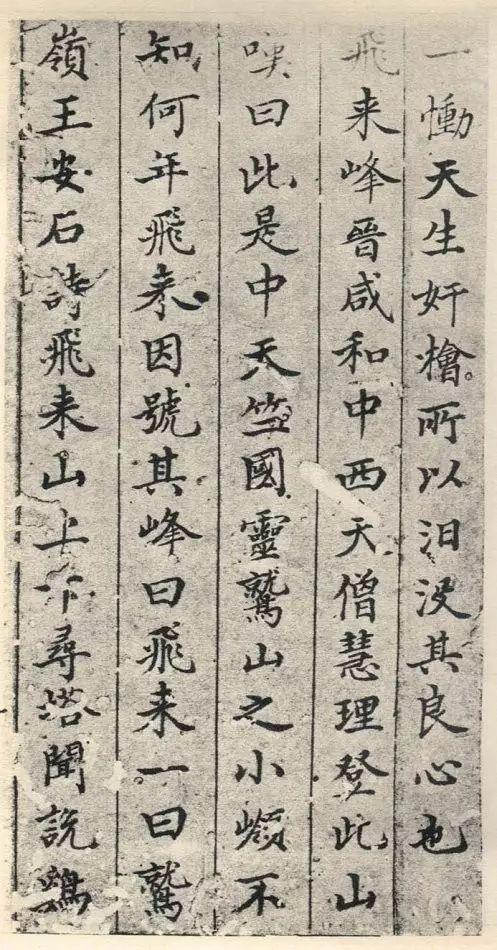 一慟天生奸檜所以汨没其良心也
飛来峰晉咸和中西天僧慧理登此山
嘆曰此是中天竺國靈鷲山之小嶺不
知何年飛来因號其峰曰飛来一曰鷲
嶺王安石詩飛来山上下尋塔聞説鷄